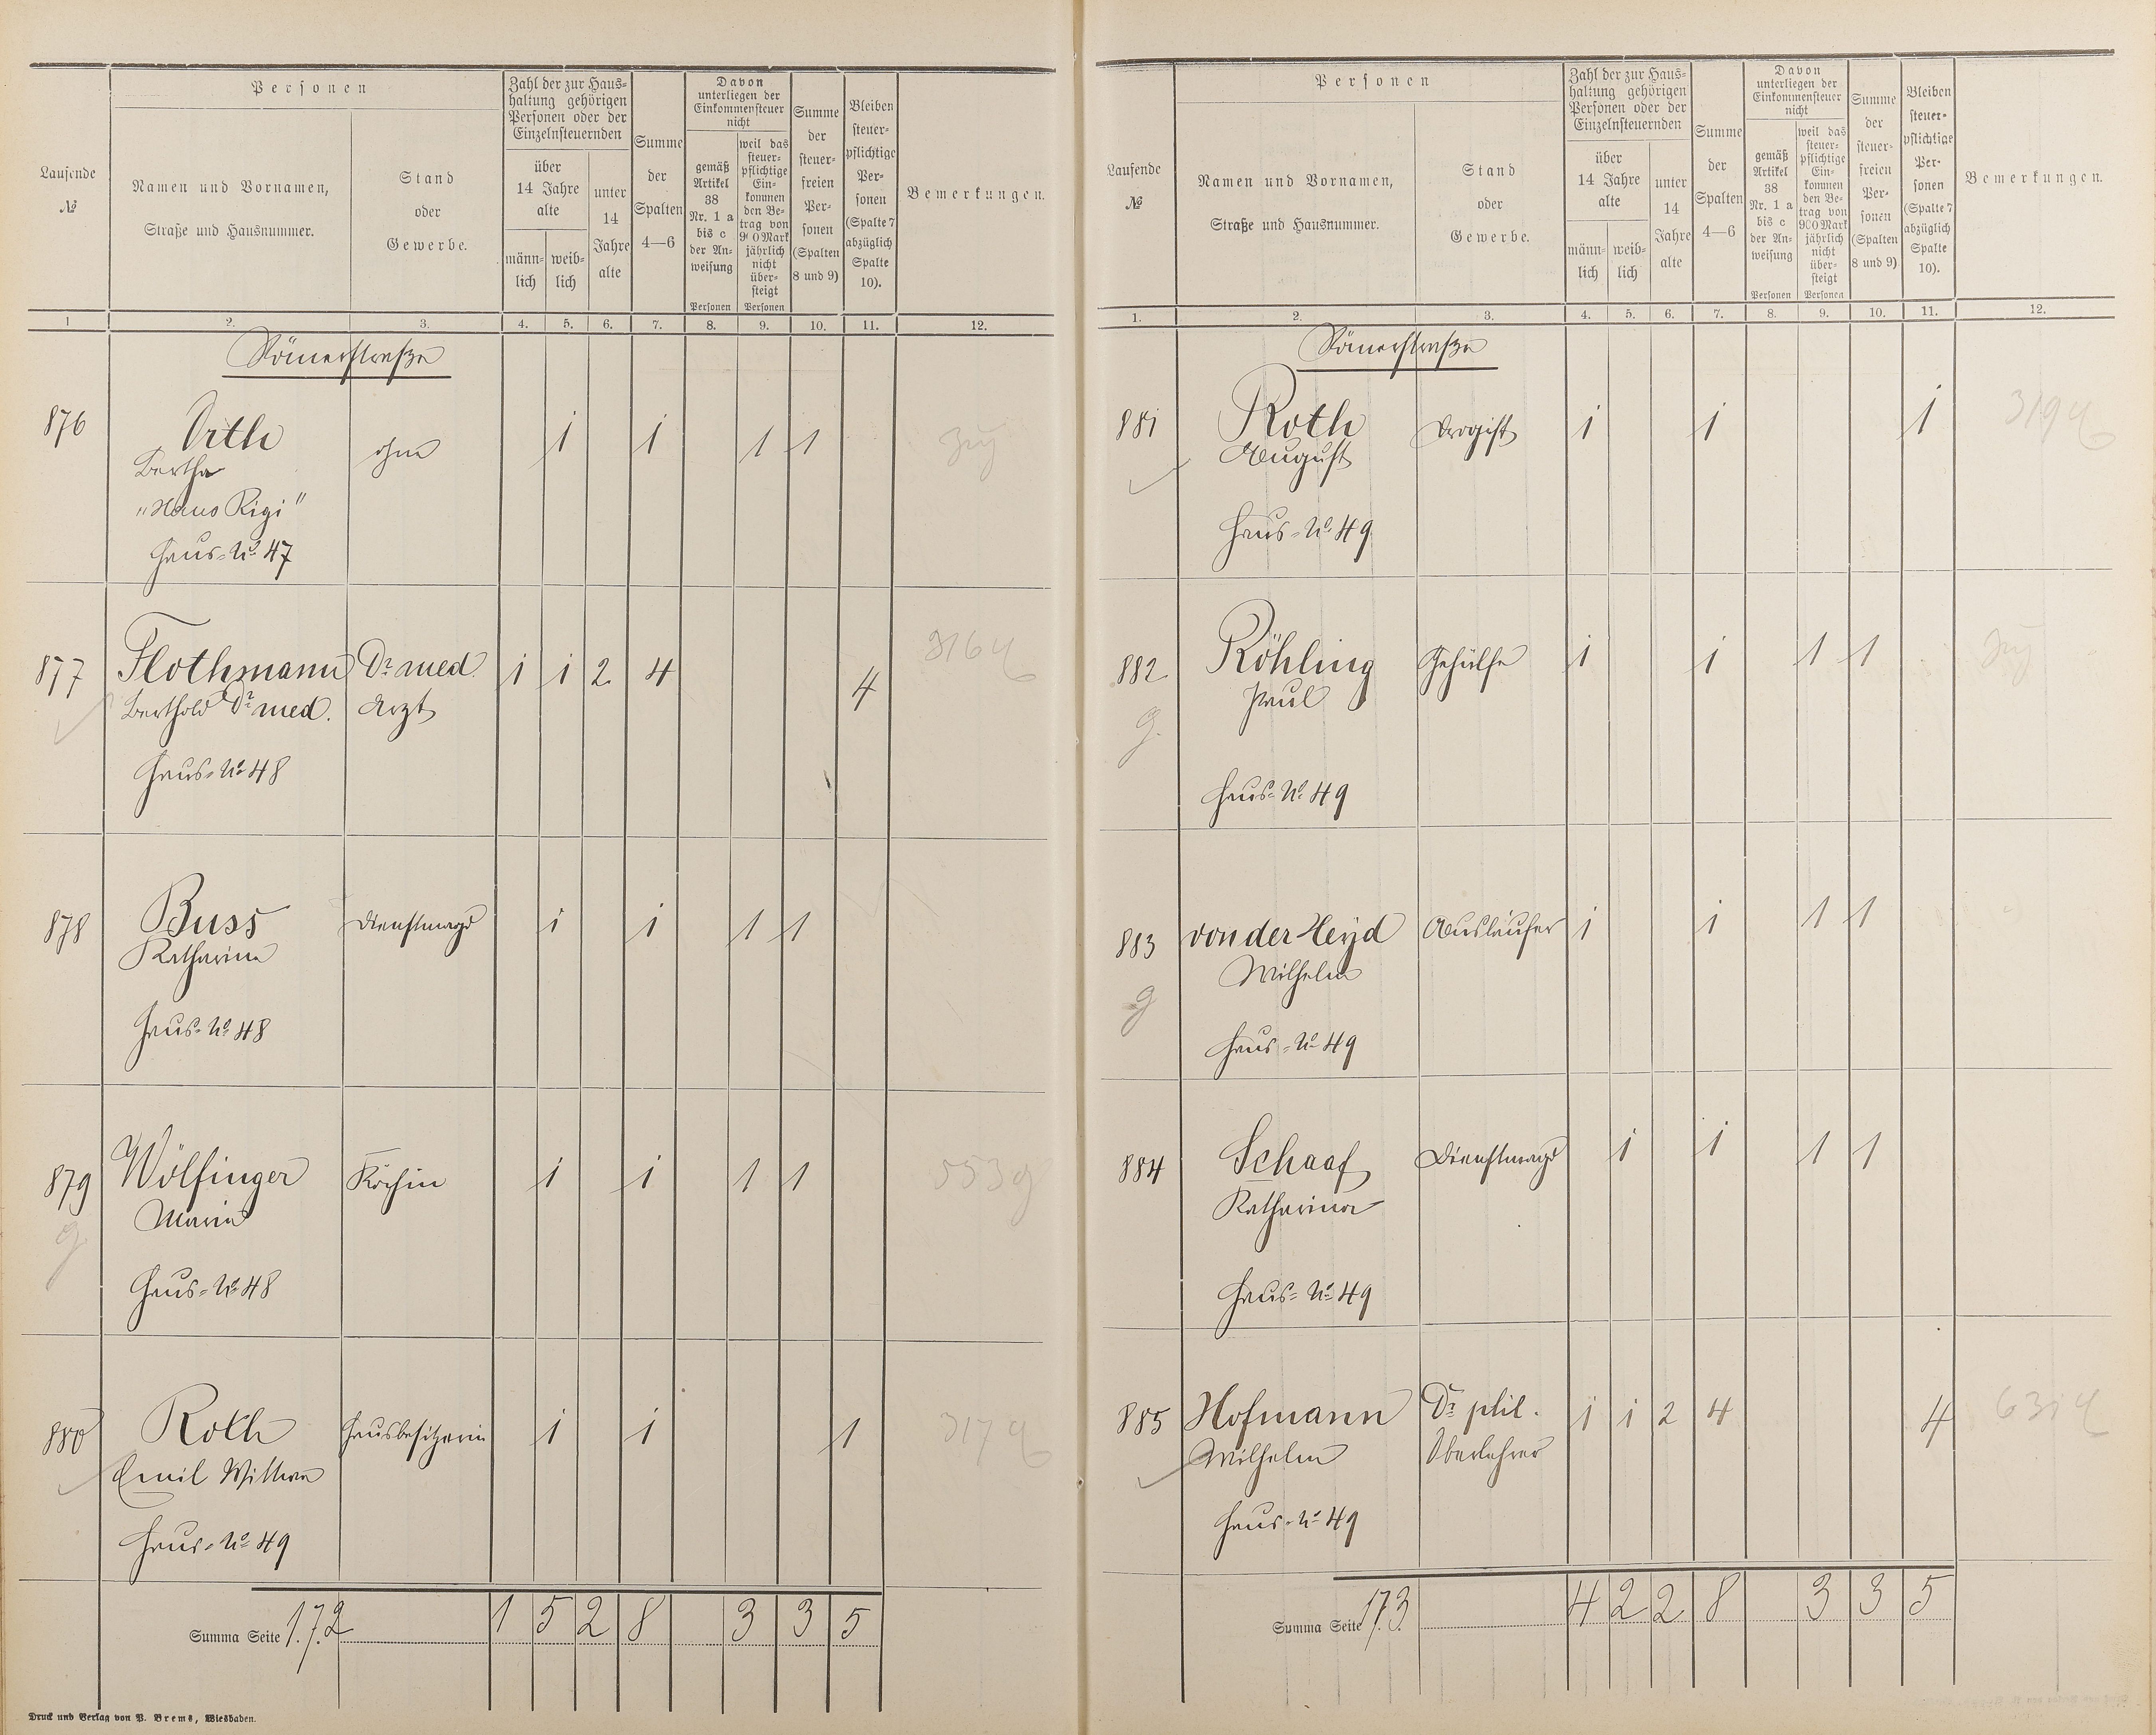 Personen
Zahl der zur Haus-
haltung gehörigen
Personen oder der
Einzelnsteuernden
Davon
unterliegen der
Einkommensteuer
nicht
Laufende
№
Namen und Vornamen,
Straße und Hausnummer.
Stand
oder
Gewerbe.
über
14 Jahre
alte
männ-
lich
weib-
lich
unter
14
Jahre
alte
Summe
der
Spalten
4—6
gemäß
Artikel
38
Nr. 1 a
bis c
der An-
weisung
Personen
weil das
steuer-
pflichtige
Ein-
kommen
den Be-
trag von
900 Mark
jährlich
nicht
über-
steigt
Personen
Summe
der
steuer-
freien
Per-
sonen
(Spalten
8 und 9)
Bleiben
steuer-
pflichtige
Per-
sonen
(Spalte 7
abzüglich
Spalte
10).
Bemerkungen.
1 2. 3. 4. 5. 6. 7. 8. 9. 10. 11. 12.
Römerstraße
876 Orth ohne 1 1 1 1
Bertha
"Haus Rigi"
Haus-No 47
877 Flothmann Dr med. 1 1 2 4 4 3164
Berthold Dr med. Arzt
Haus-No 48
878 Buss Dienstmagd 1 1 1 1
Katharina
Haus-No 48
879 Wölfinger Köchin 1 1 1 1 5539
g. Maria
Haus-No 48
880 Roth Hausbesitzerin 1 1 1 317
Emil Wittwe
Haus-No 49
Summa Seite 172 1 5 2 8 3 3 5
Druck und Verlag von P. Brems, Wiesbaden.
Personen
Zahl der zur Haus-
haltung gehörigen
Personen oder der
Einzelnsteuernden
Davon
unterliegen der
Einkommensteuer
nicht
Laufende
№
Namen und Vornamen,
Straße und Hausnummer.
Stand
oder
Gewerbe.
über
14 Jahre
alte
männ-
lich
weib-
lich
unter
14
Jahre
alte
Summe
der
Spalten
4—6
gemäß
Artikel
38
Nr. 1 a
bis c
der An-
weisung
Personen
weil das
steuer-
pflichtige
Ein-
kommen
den Be-
trag von
900 Mark
jährlich
nicht
über-
steigt
Personen
Summe
der
steuer-
freien
Per-
sonen
(Spalten
8 und 9)
Bleiben
steuer-
pflichtige
Per-
sonen
(Spalte 7
abzüglich
Spalte
10).
Bemerkungen.
1. 2. 3. 4. 5. 6. 7. 8. 9. 10. 11. 12.
Römerstraße
881 Roth Drogist 1 1 1 319
August
Haus-No 49
882 Röhling Gehülfe 1 1 1 1
g. Paul
Haus-No 49
883 von der Heyd Ausläufer 1 1 1 1
g Wilhelm
Haus-No 49
884 Schaaf Dienstmagd 1 1 1 1
Katharina
Haus-No 49
885 Hofmann Dr phil. 1 1 2 4 4 631
Wilhelm Oberlehrer
Haus-No 49
Summa Seite 173 4 2 2 8 3 3 5